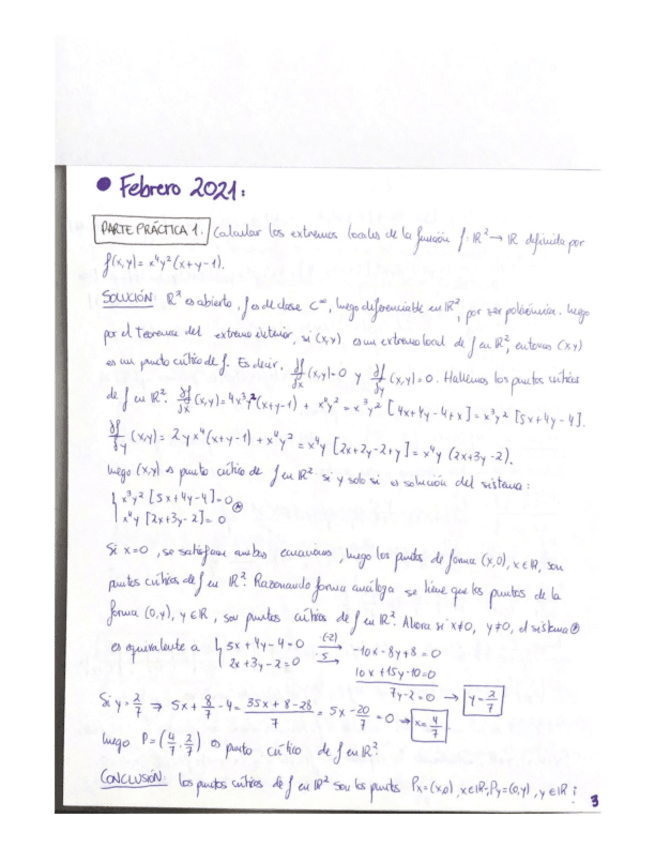 • Febrero 2021:
PARTE PRÁCTICA 1. Calcular los extremos locales de la función f: ℝ² → ℝ definida por
f(x,y) = x⁴y²(x+y-1).
SOLUCIÓN: ℝ² es abierto, f es de clase C^∞, luego diferenciable en ℝ², por ser polinómica. Luego
por el Teorema del extremo interior, si (x,y) es un extremo local de f en ℝ², entonces (x,y)
es un punto crítico de f. Es decir, ∂f/∂x (x,y)=0 y ∂f/∂y (x,y)=0. Hallemos los puntos críticos
de f en ℝ². ∂f/∂x (x,y) = 4x³y²(x+y-1) + x⁴y² = x³y² [4x+4y-4+x] = x³y² [5x+4y-4].
∂f/∂y (x,y) = 2yx⁴(x+y-1) + x⁴y² = x⁴y [2x+2y-2+y] = x⁴y (2x+3y-2).
Luego (x,y) es punto crítico de f en ℝ² si y solo si es solución del sistema:
{ x³y² [5x+4y-4]=0
x⁴y [2x+3y-2]=0 ⊛
Si x=0, se satisfacen ambas ecuaciones, luego los puntos de forma (x,0), x∈ℝ, son
puntos críticos de f en ℝ². Razonando forma análoga se tiene que los puntos de la
forma (0,y), y∈ℝ, son puntos críticos de f en ℝ². Ahora si x≠0, y≠0, el sistema ⊛
es equivalente a { 5x+4y-4=0 (-2)→ -10x-8y+8=0
2x+3y-2=0 5→ 10x+15y-10=0
7y-2=0 → y=2/7
Si y=2/7 ⇒ 5x+8/7-4 = (35x+8-28)/7 = 5x-20/7 = 0 ⇒ x=4/7
luego P=(4/7, 2/7) es punto crítico de f en ℝ².
CONCLUSIÓN: los puntos críticos de f en ℝ² son los puntos Px=(x,0), x∈ℝ; Py=(0,y), y∈ℝ ;
3